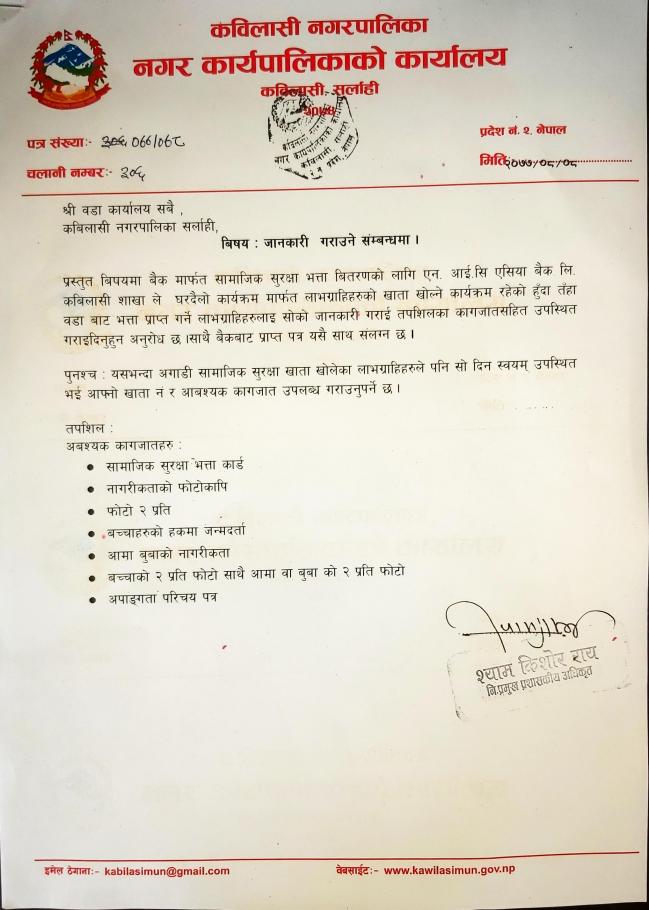 कविलासी नगरपालिका
नगर कार्यपालिकाको कार्यालय
कविलासी, सर्लाही
पत्र संख्याः-
प्रदेश नं. २, नेपाल
चलानी नम्बरः- ३०६
मितिः २०७७/०८/०८
श्री वडा कार्यालय सबै ,
कबिलासी नगरपालिका सर्लाही,
बिषय : जानकारी गराउने संम्बन्धमा ।
प्रस्तुत बिषयमा बैक मार्फत सामाजिक सुरक्षा भत्ता बितरणको लागि एन. आई.सि एसिया बैक लि.
कबिलासी शाखा ले घरदैलो कार्यक्रम मार्फत लाभग्राहिहरुको खाता खोल्ने कार्यक्रम रहेको हुँदा तंहा
वडा बाट भत्ता प्राप्त गर्ने लाभग्राहिहरुलाइ सोको जानकारी गराई तपशिलका कागजातसहित उपस्थित
गराइदिनुहुन अनुरोध छ ।साथै बैकबाट प्राप्त पत्र यसै साथ संलग्न छ ।
पुनश्च : यसभन्दा अगाडी सामाजिक सुरक्षा खाता खोलेका लाभग्राहिहरुले पनि सो दिन स्वयम् उपस्थित
भई आफ्नो खाता नं र आबश्यक कागजात उपलब्ध गराउनुपर्ने छ ।
तपशिल :
अबश्यक कागजातहरु :
● सामाजिक सुरक्षा भत्ता कार्ड
● नागरीकताको फोटोकापि
● फोटो २ प्रति
● बच्चाहरुको हकमा जन्मदर्ता
● आमा बुबाको नागरीकता
● बच्चाको २ प्रति फोटो साथै आमा वा बुबा को २ प्रति फोटो
● अपाङ्गता परिचय पत्र
श्याम किशोर राय
नि.प्रमुख प्रशासकीय अधिकृत
इमेल ठेगानाः- kabilasimun@gmail.com
वेबसाईटः- www.kawilasimun.gov.np